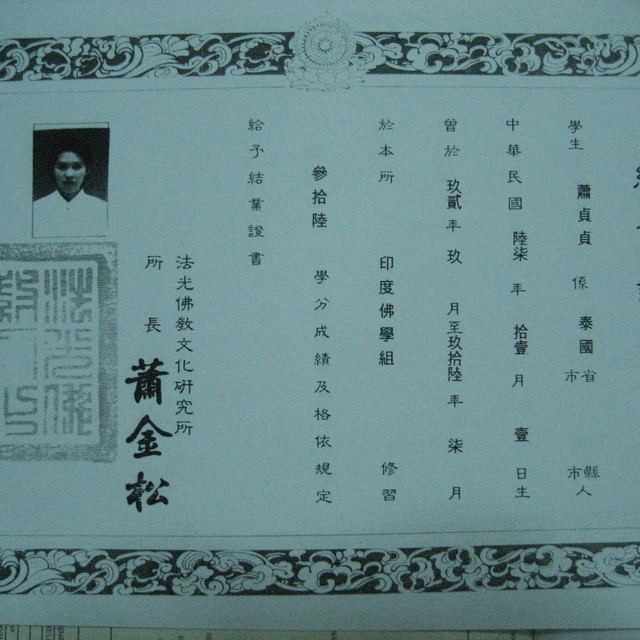 學生 蕭貞貞 係 泰國 省市 縣市人
中華民國 陸柒 年 拾壹 月 壹 日生
曾於 玖貳 年 玖 月至 玖拾陸 年 柒 月
於本所 印度佛學組 修習
參拾陸 學分成績及格依規定
給予結業證書
法光佛教文化研究所
所長 蕭金松